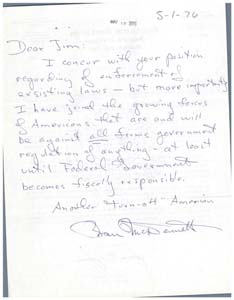 5-1-76
Dear Jim:
I concur with your position
regarding of enforcement of
existing laws — but more importantly
I have joined the growing forces
of Americans that are and will
be against all former government
regulation of anything — at least
until Federal Government
becomes fiscally responsible.
Another "turn-off" American